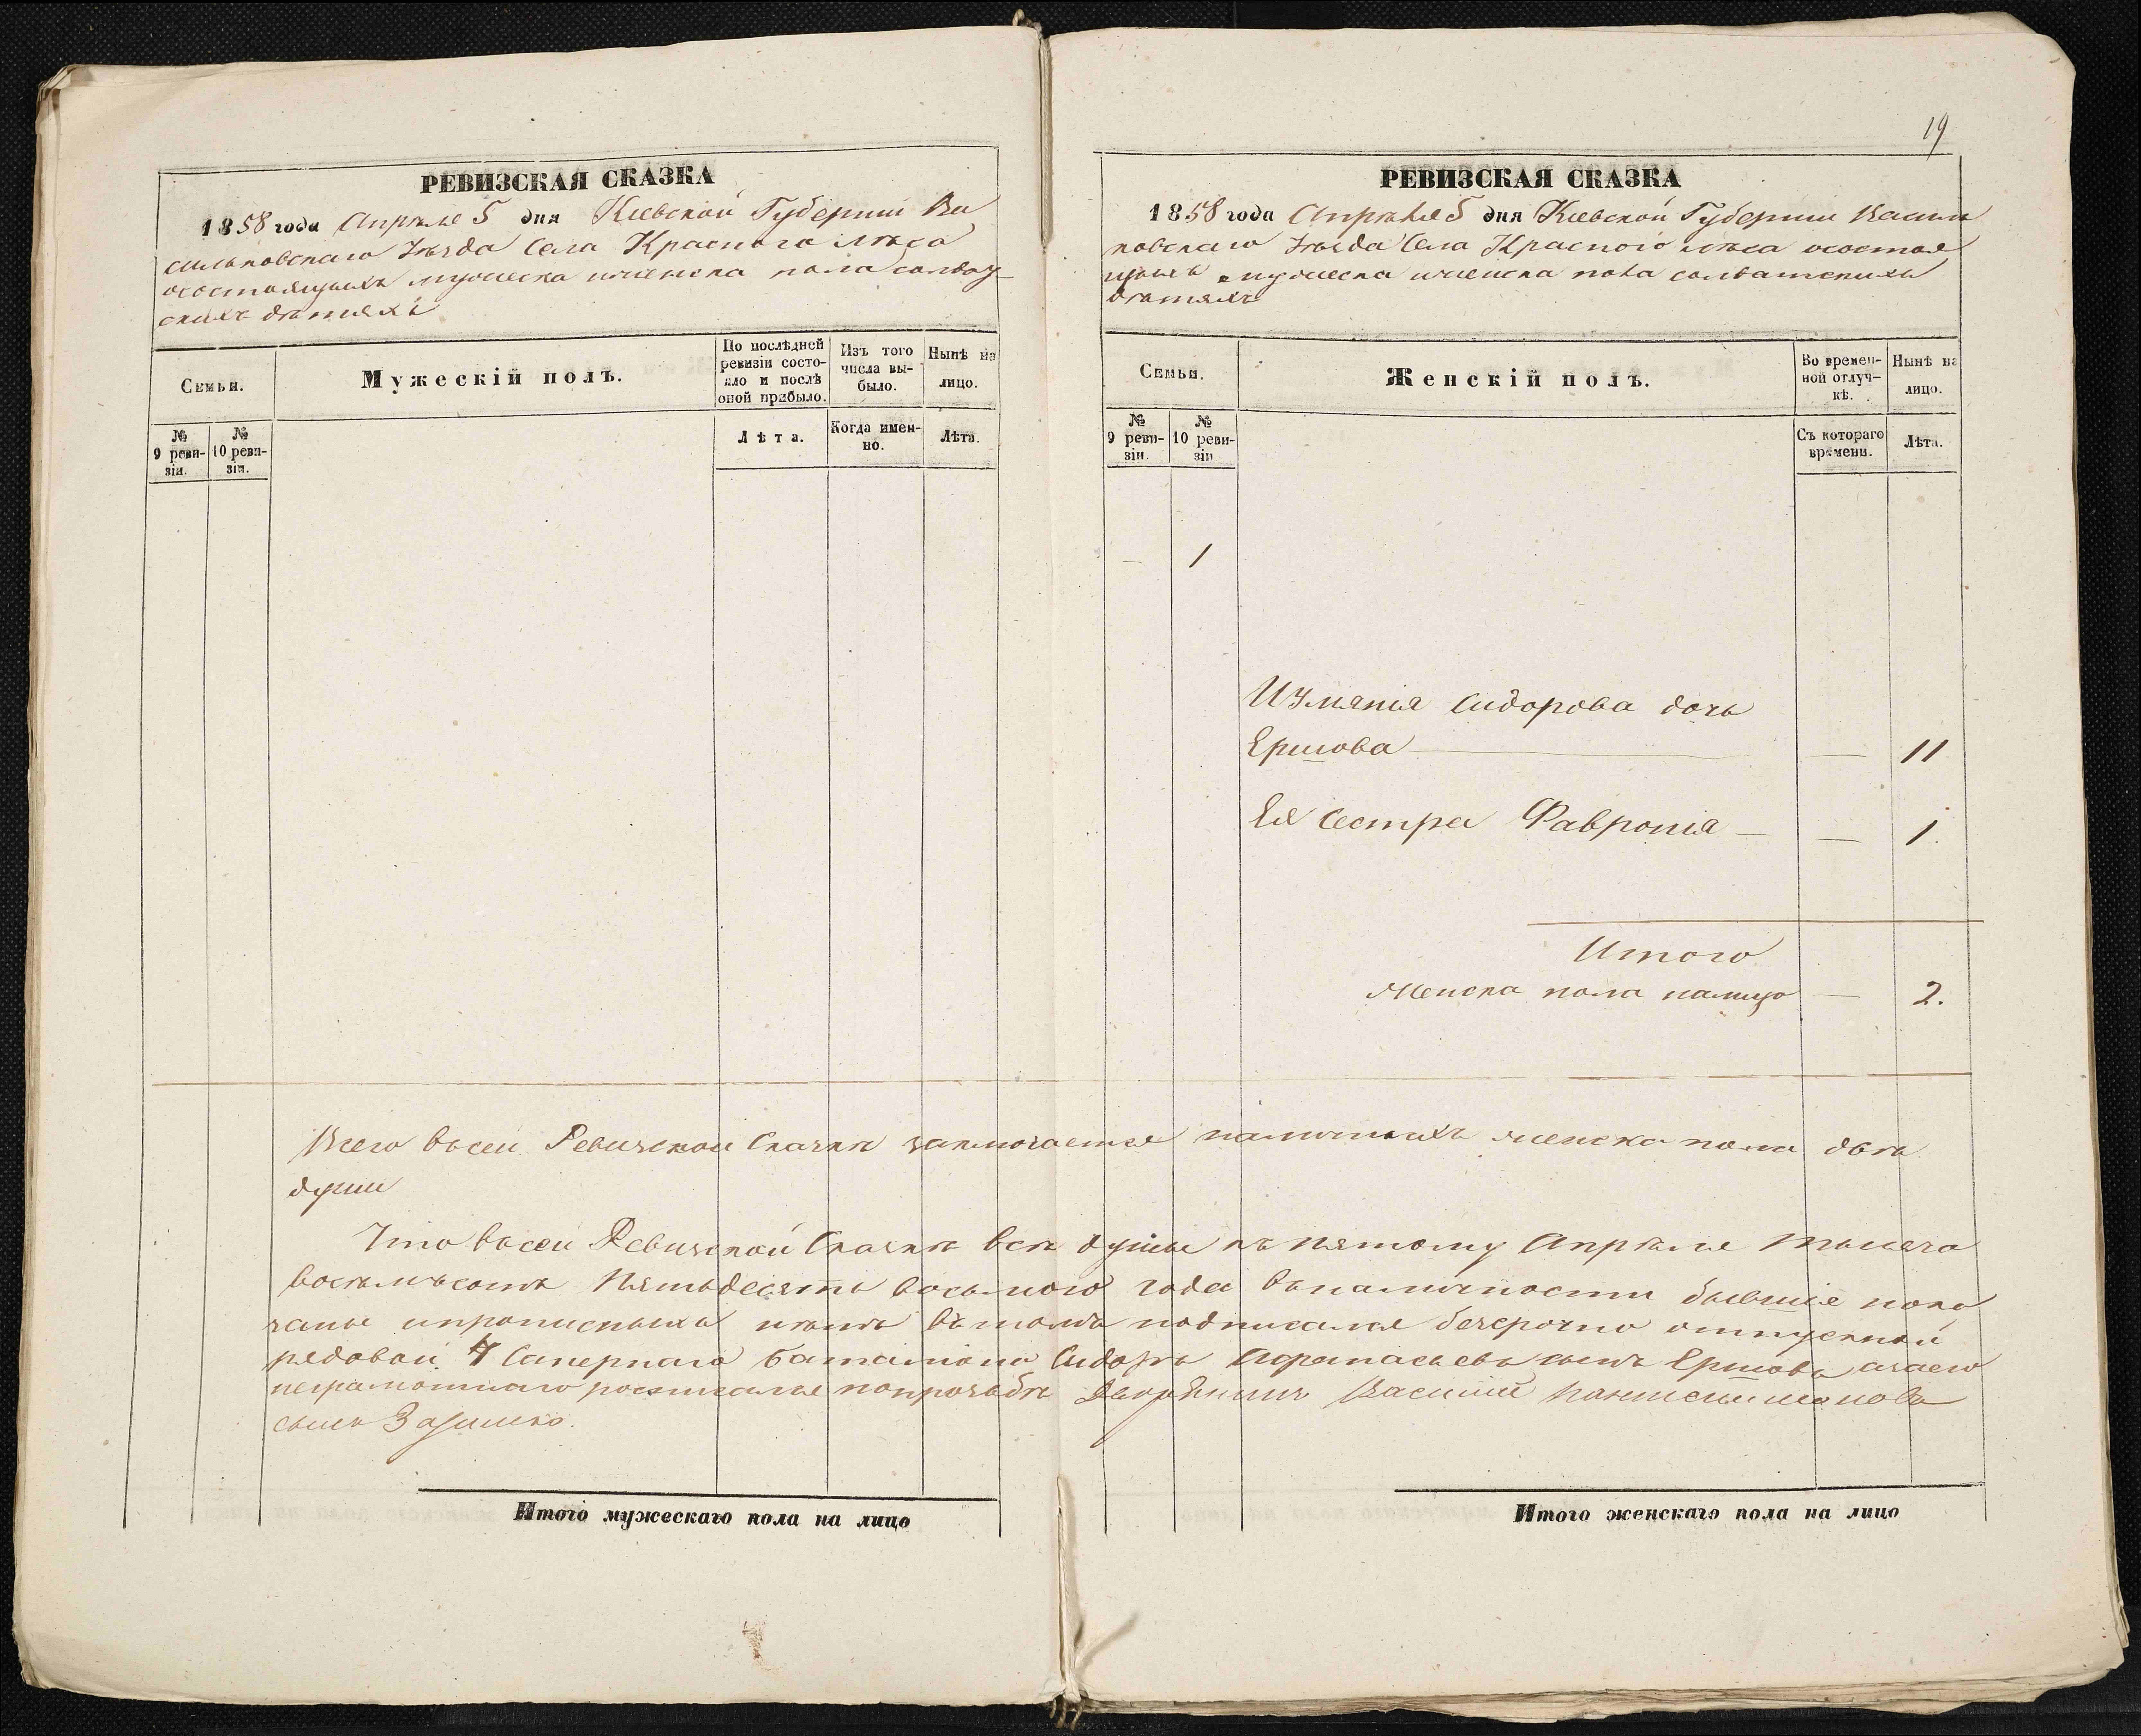 РЕВИЗСКАЯ СКАЗКА
1858 года Апрѣля 5 дня Кіевской Губерніи Ва
сильковскаго Уѣзда Села Краснаго лѣса
осостоящихъ мужеска иженска пола солдат
скихъ дѣтяхъ
Семьи.
Мужескій полъ.
По послѣдней
ревизіи состо-
яло и послѣ
оной прибыло.
Изъ того
числа вы-
было.
Нынѣ на
лицо.
№
9 реви-
зіи.
№
10 реви-
зіи.
Лѣта.
Когда имен-
но.
Лѣта.
19
РЕВИЗСКАЯ СКАЗКА
1858 года Апрѣля 5 дня Кіевской Губерніи Василь
ковскаго Уѣзда Села Красного лѣса осостоя
щихъ мужеска иженска пола солдатскихъ
дѣтяхъ
Семьи.
Женскій полъ.
Во времен-
ной отлуч-
кѣ.
Нынѣ на
лицо.
№
9 реви-
зіи.
№
10 реви-
зіи
Съ котораго
времени.
Лѣта.
— 1
Сидорова дочь
Ершова — — 11
Ея Сестра Фавронія — — 1.
Итого
Женска пола налицо — 2.
Всего всей Ревизской Сказкѣ заключается наличныхъ женска пола двѣ
души
Что всей Ревизской Сказкѣ всѣ души къ пятому Апрѣля тысяча
восемьсотъ пятьдесятъ восьмого года въналичности бывшіе пока
заны ипрописныхъ нѣтъ вътомъ подписался безсрочно отпускной
рядовой 4 Сапернаго Баталіона Сидоръ Афанасьевъ сынъ Ершовъ азаего
неграмотнаго росписался попрозьбѣ Дворянинъ Василій
сынъ
Итого мужескаго пола на лицо
Итого женскаго пола на лицо